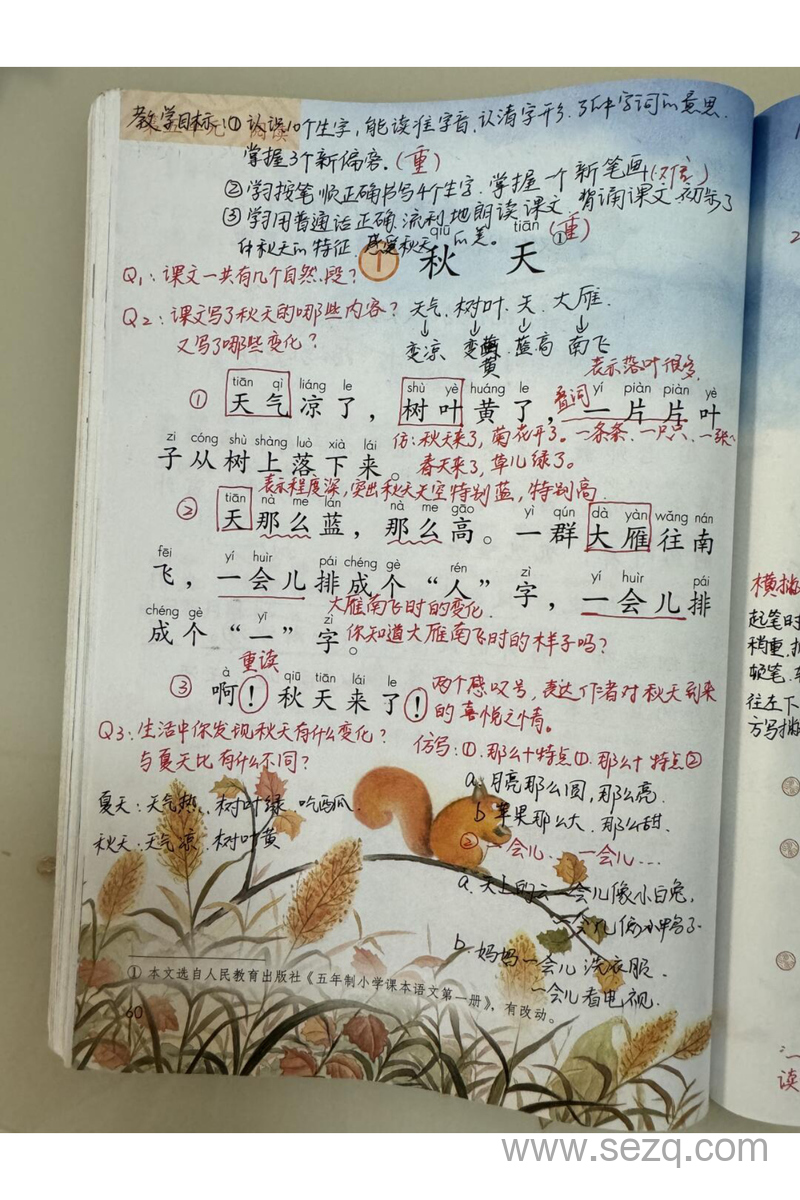 教学目标:①认识10个生字,能读准字音,认清字形,了解字词的意思.
掌握3个新偏旁.(重)
②学习按笔顺正确书写4个生字.掌握一个新笔画
③学习用普通话正确.流利地朗读课文.背诵课文.初步了
体秋天的特征.感受秋天的美。(重)
qiū tiān
1 秋天①
Q1:课文一共有几个自然段?
Q2:课文写了秋天的哪些内容?天气.树叶.天.大雁.
又写了哪些变化?
变凉 变黄 蓝.高 南飞
表示落叶很多.
tiān qì liáng le shù yè huáng le yí piàn piàn yè
① 天气凉了,树叶黄了,一片片叶
量词
仿:秋天来了,菊花开了。一条条.一只只.一张
zi cóng shù shàng luò xià lái
子从树上落下来。
春天来了,草儿绿了。
表示程度深,突出秋天天空特别蓝,特别高.
tiān nà me lán nà me gāo yì qún dà yàn wǎng nán
② 天那么蓝,那么高。一群大雁往南
fēi yí huìr pái chéng gè rén zì yí huìr pái
飞,一会儿排成个“人”字,一会儿排
大雁南飞时的变化.
chéng gè yī zì
成个“一”字。
你知道大雁南飞时的样子吗?
重读
à qiū tiān lái le
③ 啊!秋天来了!
两个感叹号,表达作者对秋天到来
的喜悦之情。
Q3:生活中你发现秋天有什么变化?
与夏天比有什么不同?
仿写:①.那么+特点①.那么+特点②
a.月亮那么圆,那么亮.
b 苹果那么大.那么甜.
夏天:天气热.树叶绿.吃西瓜.
秋天:天气凉.树叶黄
②一会儿…一会儿…
a.天上的云一会儿像小白兔,
一会儿像小鸭子.
b.妈妈一会儿洗衣服.
一会儿看电视.
① 本文选自人民教育出版社《五年制小学课本语文第一册》,有改动。
60
横撇
起笔时
稍重.
往左下
读
www.sezq.com